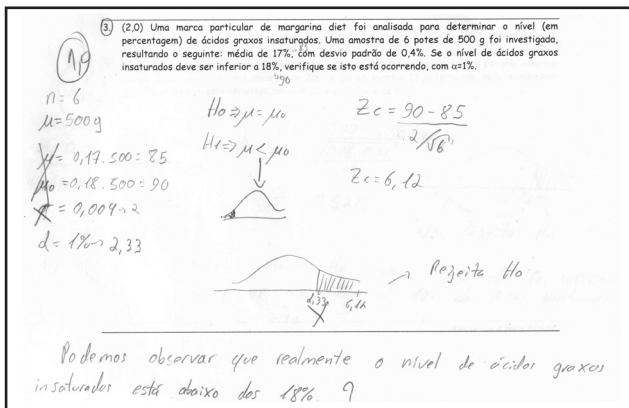 3. (2,0) Uma marca particular de margarina diet foi analisada para determinar o nível (em
percentagem) de ácidos graxos insaturados. Uma amostra de 6 potes de 500 g foi investigada,
resultando o seguinte: média de 17%, com desvio padrão de 0,4%. Se o nível de ácidos graxos
insaturados deve ser inferior a 18%, verifique se isto está ocorrendo, com α=1%.
90
1,0
n = 6
μ = 500g
μ = 0,17.500 = 85
μ0 = 0,18.500 = 90
= 0,004 → 2
α = 1% → 2,33
H0 ⇒ μ = μ0
H1 ⇒ μ < μ0
Zc = 90 - 85
2/√6
Zc = 6,12
2,33 6,12
→ Rejeita H0
Podemos observar que realmente o nível de ácidos graxos
insaturados está abaixo dos 18%. ?